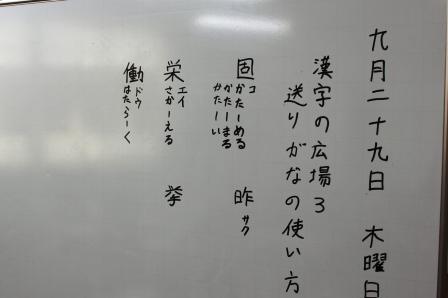 九月二十九日 木曜日
漢字の広場3
送りがなの使い方
固 コ かた－める かた－まる かた－い 昨 サク
栄 エイ さか－える 挙
働 ドウ はたら－く